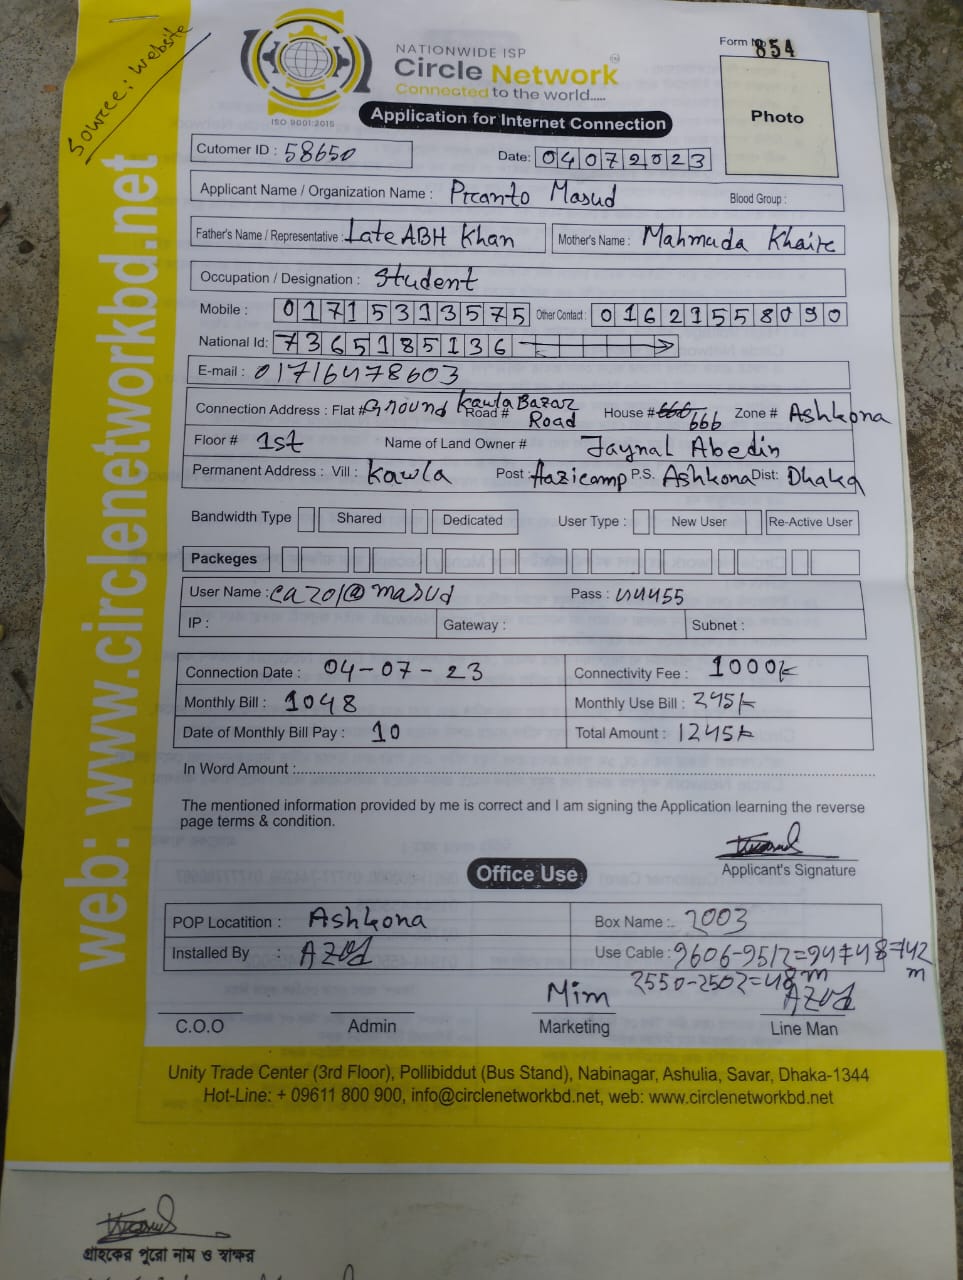 Source: website
NATIONWIDE ISP
Circle Network
Connected to the world.....
ISO 9001:2015
Form No 854
Photo
Application for Internet Connection
Cutomer ID : 58650
Date: 04072023
Applicant Name / Organization Name : Pranto Masud Blood Group :
Father's Name / Representative : Late ABH Khan Mother's Name : Mahmuda Khair
Occupation / Designation : Student
Mobile : 01715313575 Other Contact : 01621558090
National Id: 7365185136
E-mail : 01716478603
Connection Address : Flat # Ground Road # Kawla Bazar Road House # 666 Zone # Ashkona
Floor # 1st Name of Land Owner # Jaynal Abedin
Permanent Address : Vill : Kawla Post : Hazicamp P.S. Ashkona Dist: Dhaka
Bandwidth Type Shared Dedicated User Type : New User Re-Active User
Packeges
User Name : cazol@masud Pass : 44455
IP : Gateway : Subnet :
Connection Date : 04-07-23 Connectivity Fee : 1000/-
Monthly Bill : 1048 Monthly Use Bill : 245/-
Date of Monthly Bill Pay : 10 Total Amount : 1245/-
In Word Amount :
The mentioned information provided by me is correct and I am signing the Application learning the reverse
page terms & condition.
Applicant's Signature
Office Use
POP Locatition : Ashkona Box Name :. 2003
Installed By : AZAD Use Cable : 9606-9512=94+48=142 m
2550-2502=48 m
Mim AZAD
C.O.O Admin Marketing Line Man
Unity Trade Center (3rd Floor), Pollibiddut (Bus Stand), Nabinagar, Ashulia, Savar, Dhaka-1344
Hot-Line: + 09611 800 900, info@circlenetworkbd.net, web: www.circlenetworkbd.net
web: www.circlenetworkbd.net
গ্রাহকের পুরো নাম ও স্বাক্ষর